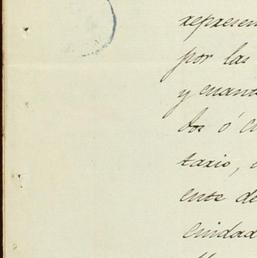 represen
por las
y cuant
dos ó c
tario,
ente de
ciudad